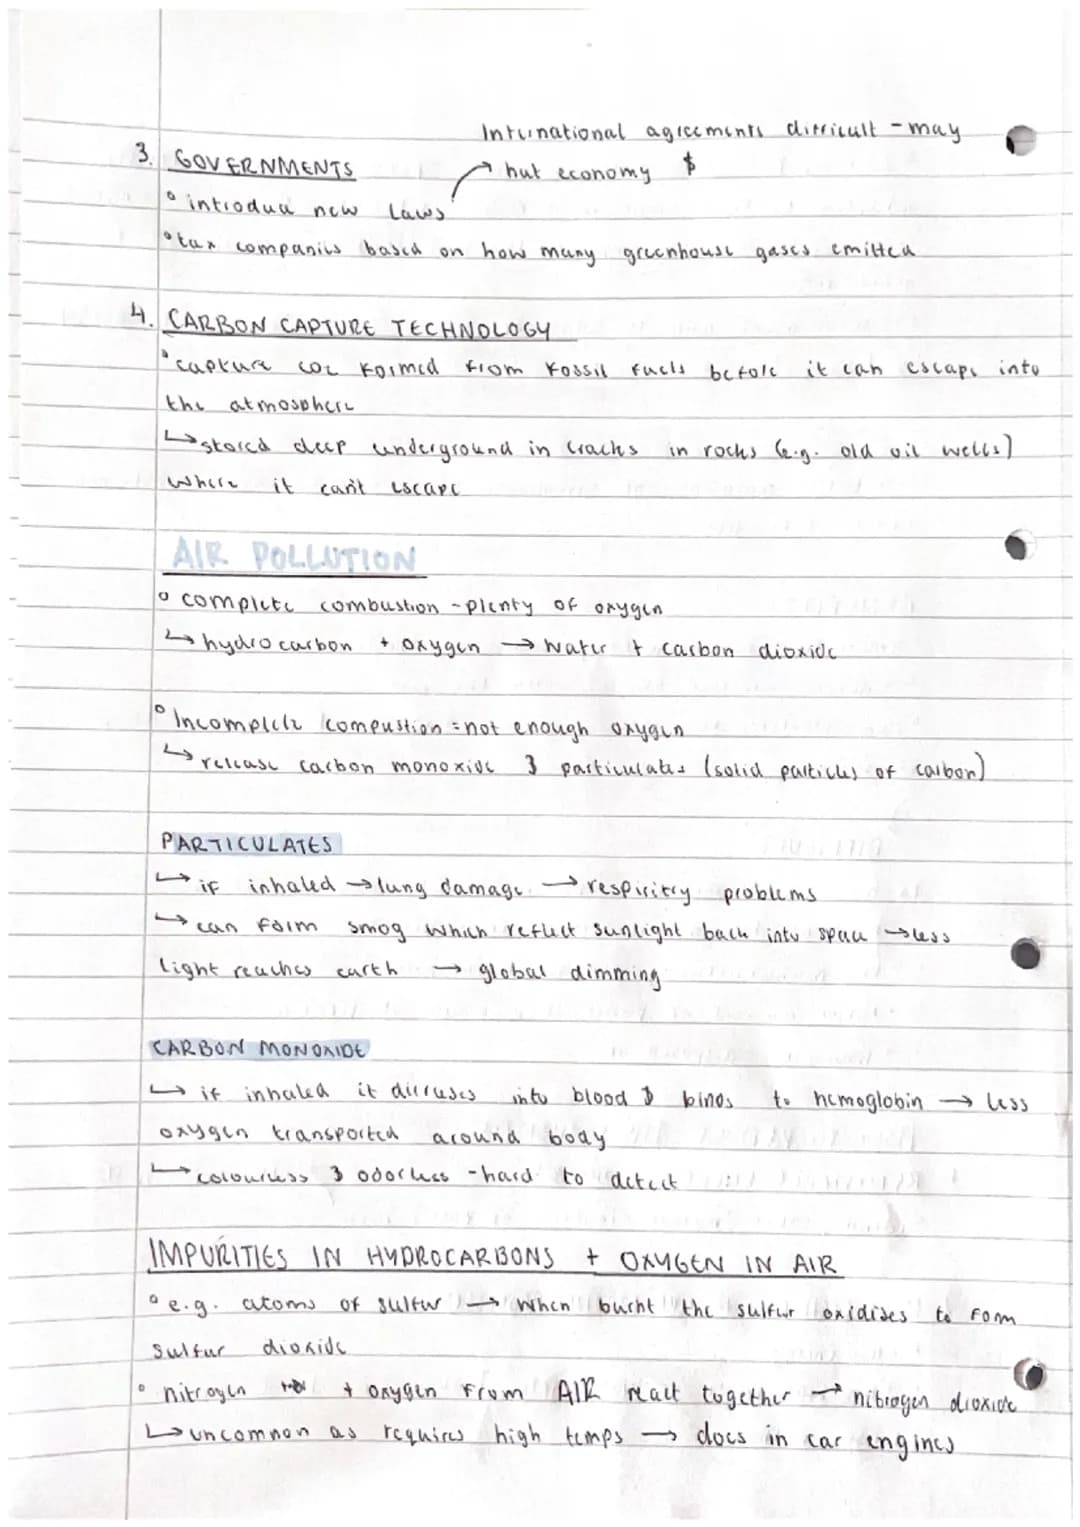 International agreements difficult - may
3. GOVERNMENTS → hut economy $
° introduce new laws
° tax companies based on how many greenhouse gases emitted
4. CARBON CAPTURE TECHNOLOGY
° capture CO2 formed from fossil fuels before it can escape into
the atmosphere
↳ stored deep underground in cracks in rocks (e.g. old oil wells)
where it can't escape
AIR POLLUTION
° complete combustion - plenty of oxygen
↳ hydrocarbon + oxygen → water + carbon dioxide
° Incomplete compustion = not enough oxygen
↳ release carbon monoxide & particulates (solid particles of carbon)
PARTICULATES
↳ if inhaled → lung damage → respiritry problems
↳ can form smog which reflect sunlight back into space → less
light reaches earth → global dimming
CARBON MONOXIDE
↳ if inhaled it diffuses into blood & binds to hemoglobin → less
oxygen transported around body
↳ colourless & odorless - hard to detect
IMPURITIES IN HYDROCARBONS + OXYGEN IN AIR
° e.g. atoms of sulfur → when burnt the sulfur oxidises to form
sulfur dioxide
° nitrogen + oxygen from AIR react together → nitrogen dioxide
↳ uncommon as requires high temps → does in car engines